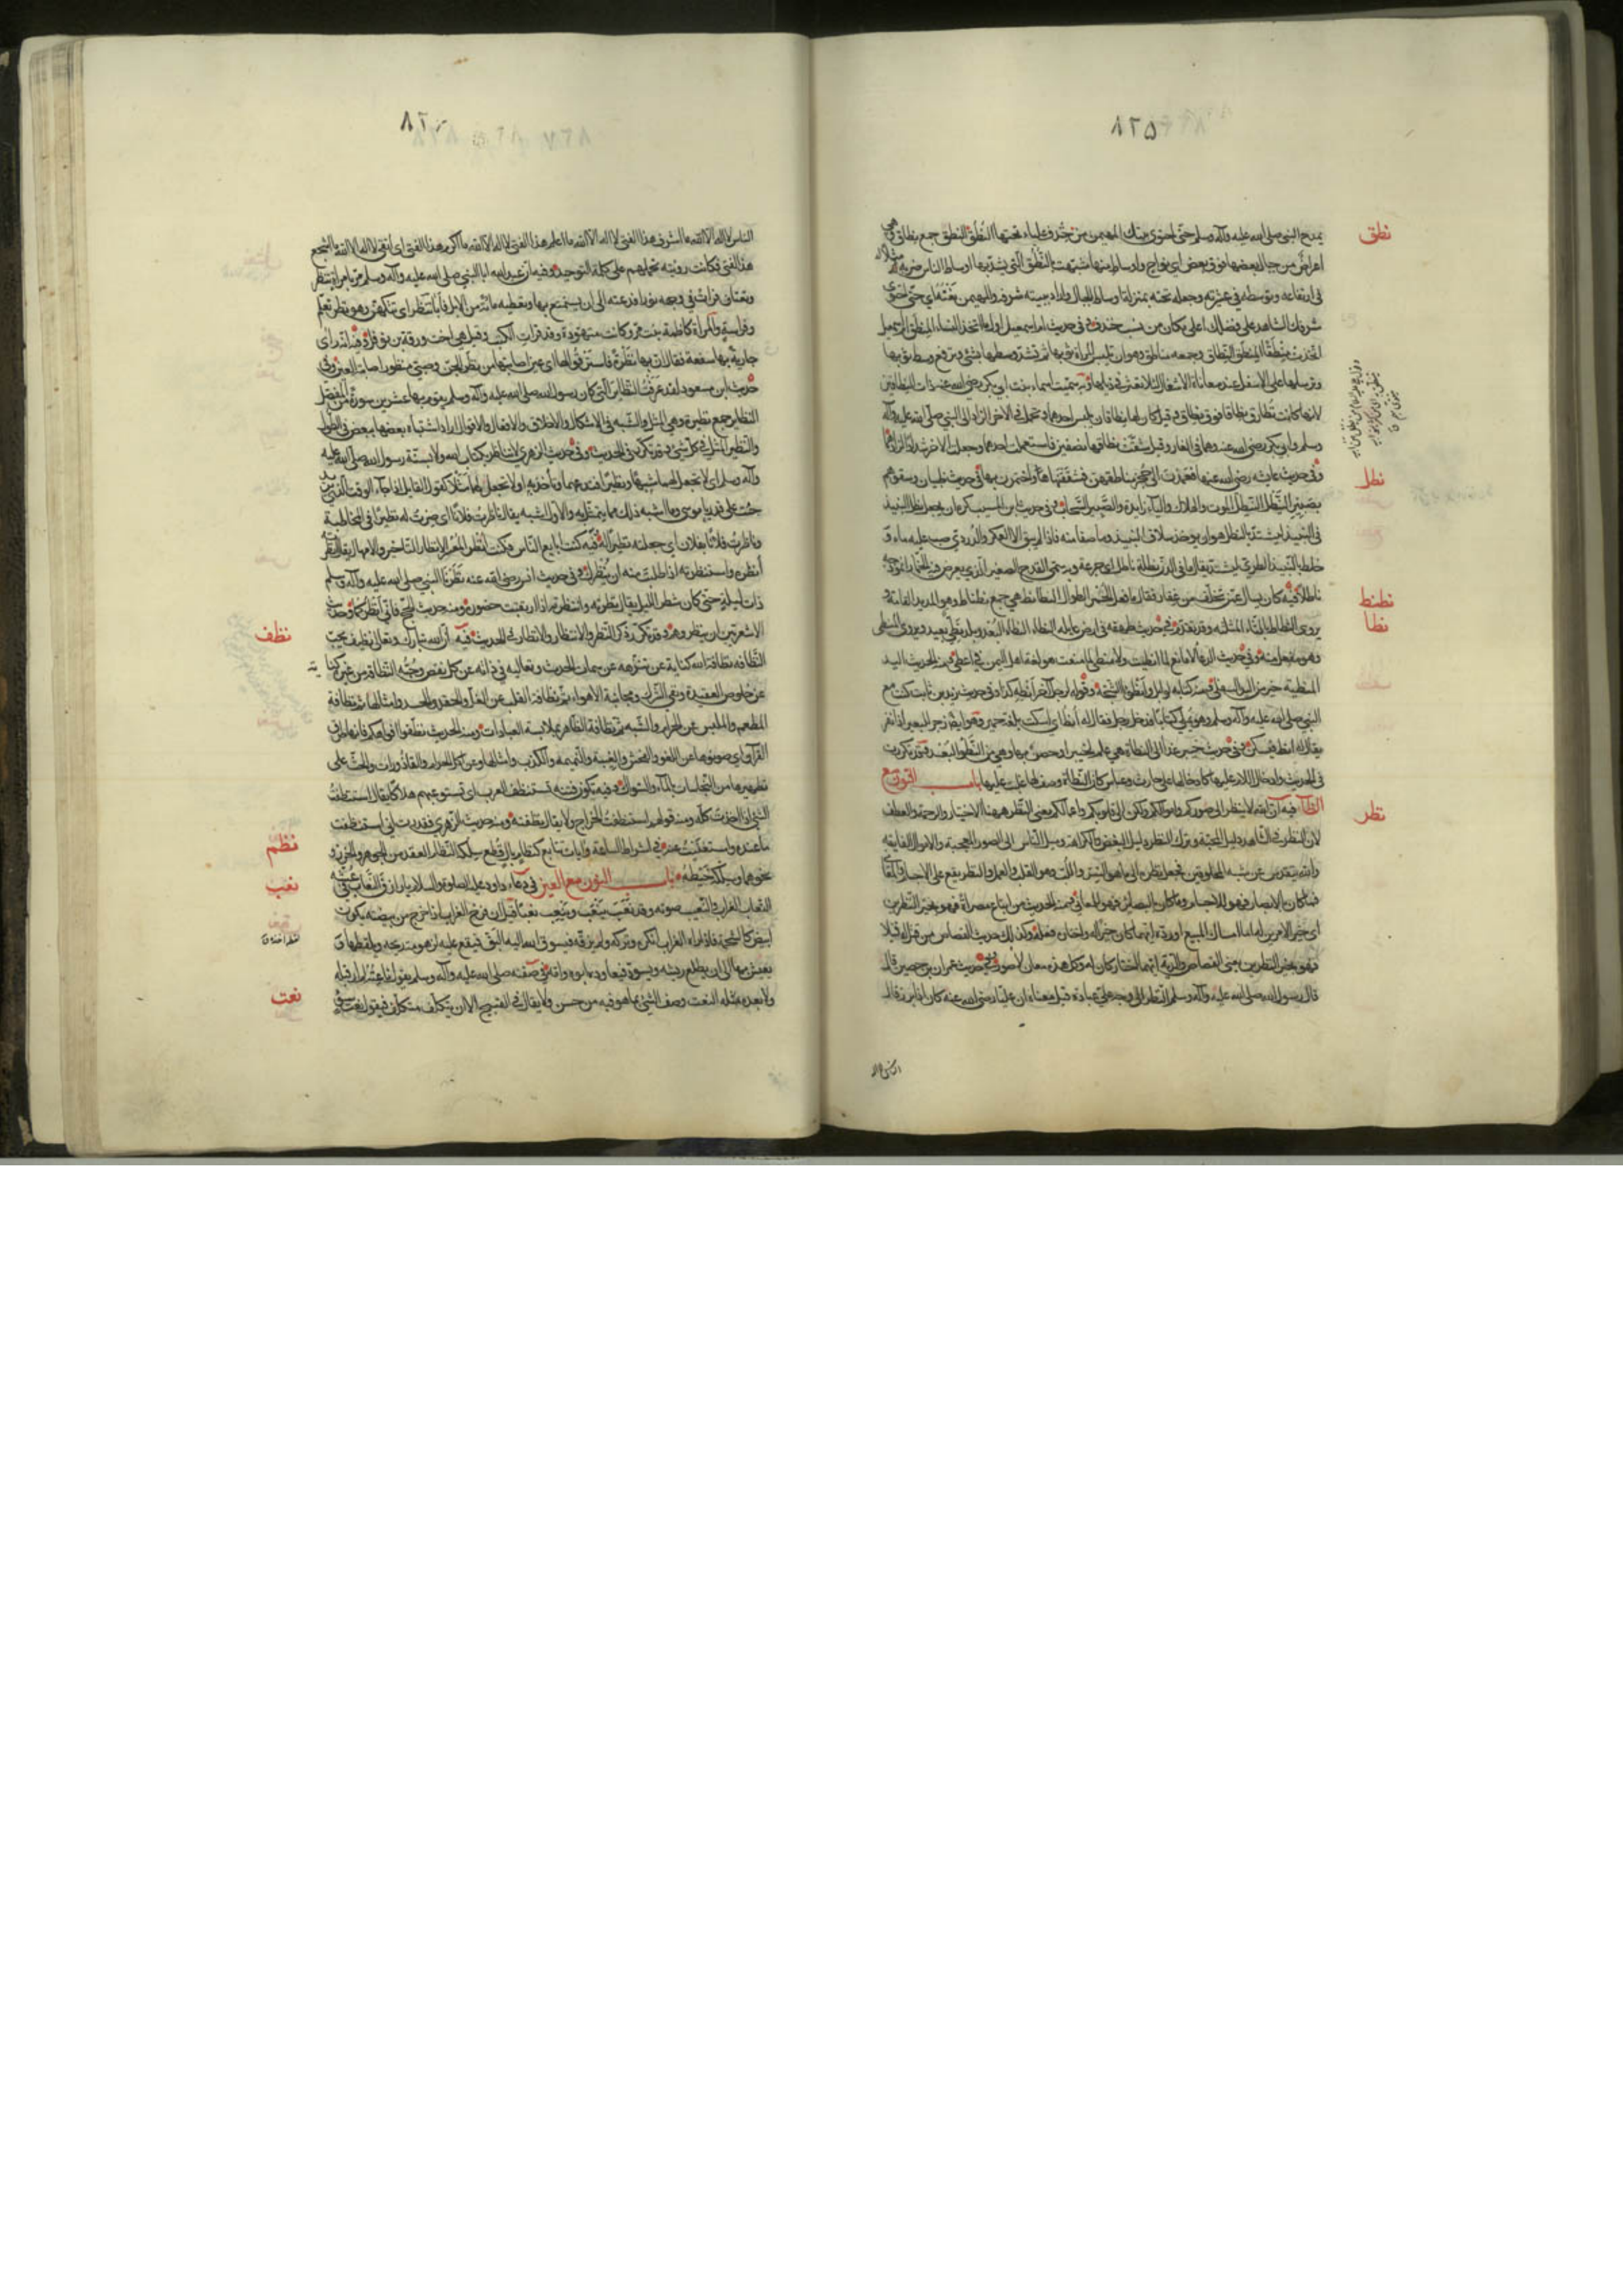 ٨٢۵
نطق
يمدح النبي صلى الله عليه وآله وسلم حتى احتوى بيتك المهيمن من خندف علياء تحتها النطق النطق جمع نطاق وهي
اعراض من جبال بعضها فوق بعض اي نواح واوساط منها شبهت بالنطق التي يشد بها اوساط الناس ضربه مثلا له
في ارتفاعه وتوسطه في عشيرته وجعلهم تحته بمنزلة اوساط الجبال واراد ببيته شرفه والمهيمن نعته اي حتى احتوى
شرفك الشاهد على فضلك اعلى مكان من نسب خندف وفي حديث ام اسمعيل اول ما اتخذ النساء المنطق ام اسمعيل
اتخذت منطقا المنطق النطاق وجمعه مناطق وهو ان تلبس المرأة ثوبها ثم تشد وسطها بشئ وترفع وسط ثوبها
وترسله على الاسفل عند معاناة الاشغال لئلا تعثر في ذيلها وبه سميت اسماء بنت ابي بكر رضي الله عنه ذات النطاقين
لانها كانت تطارق نطاقا فوق نطاق وقيل كان لها نطاقان تلبس احدهما وتحمل في الاخر الزاد الى النبي صلى الله عليه وآله
وسلم وابي بكر رضي الله عنه وهما في الغار وقيل شقت نطاقها نصفين فاستعملت احدهما وجعلت الاخر شدادا لزادهما
وفي حديث عايشه رضي الله عنها فعمدن الى حجز مناطقهن فشققنها واختمرن بها
نطل
وفي حديث ظبيان وسقوهم
بصبير النيطل النيطل الموت والهلاك والياء زايدة والصبير السحاب وفي حديث ابن المسيب كره ان يجعل نطل النبيذ
في النبيذ ليشتد بالنطل هو ان يؤخذ سلاف النبيذ وما صفا منه فاذا لم يبق الا العكر والدردي صب عليه ماء و
خلط بالنبيذ الطري ليشتد يقال ما في الدن نطلة ناطل اي جرعة وبه سمي القدح الصغير الذي يعرض فيه الخمار انموذجه
ناطلا
نطنط
فيه كان يسأل عمن تخلف من غفار فقال ما فعل الحمر الطوال النطانط هي جمع نطناط وهو المديد القامة و
يروى الثطاط بالثاء المثلثه وقد تقدم
نطا
في حديث طهفه في ارض غايله النطاء النطاء البعد وبلد نطي بعيد ويروى المنطى
وهو مفعل منه وفي حديث الدعاء لا مانع لما انطيت ولا منطي لما منعت هو لغة اهل اليمن في اعطى ومنه الحديث اليد
المنطية خير من اليد السفلى ومنه كتابه لوايل وانطوا الثبجة وقوله لرجل آخر انطه كذا وفي حديث زيد بن ثابت كنت مع
النبي صلى الله عليه وآله وسلم وهو يملي كتابا فدخل رجل فقال له انط اي اسكت بلغة حمير وهو ايضا زجر للبعير اذا نفر
يقال له انط فيسكن وفي حديث خيبر غدا الى النطاة هي علم لخيبر او حصن بها وهي من النطو البعد وقد تكررت
في الحديث وادخال اللام عليها كادخالها على حارث وعباس كأن النطاة وصف لها غلب عليها باب النون مع
الظاء
نظر
فيه ان الله لا ينظر الى صوركم واموالكم ولكن الى قلوبكم واعمالكم معنى النظر ههنا الاختيار والرحمة والعطف
لان النظر في الشاهد دليل المحبة وترك النظر دليل البغض والكراهة وميل الناس الى الصور المعجبة والاموال الفايقه
والله يتقدس عن شبه المخلوقين فجعل نظره الى ما هو السر واللب وهو القلب والعمل والنظر يقع على الاجسام والمعاني
فما كان بالابصار فهو للاجسام وما كان بالبصاير فهو للمعاني ومنه الحديث من ابتاع مصراة فهو بخير النظرين
اي خير الامرين له اما امساك المبيع او رده ايهما كان خيرا له واختار فعله وكذلك حديث القصاص من قتل له قتيل
فهو بخير النظرين يعني القصاص والدية ايهما اختار كان له وكل هذه معان لا صور وفي حديث عمران بن حصين قال
قال رسول الله صلى الله عليه وآله وسلم النظر الى وجه علي عبادة قيل معناه ان عليا رضي الله عنه كان اذا برز قال
٨٢
الناس لا اله الا الله ما اشرف هذا الفتى لا اله الا الله ما اعلم هذا الفتى لا اله الا الله ما اكرم هذا الفتى اي اتقى لا اله الا الله ما اشجع
هذا الفتى فكانت رؤيته تحملهم على كلمة التوحيد وفيه ان عبد الله ابا النبي صلى الله عليه وآله وسلم مر بامرأة تنظر
وتعتاف فرأت في وجهه نورا فدعته الى ان يستبضع منها وتعطيه مائة من الابل فابى تنظر اي تتكهن وهو نظر تعلم
وفراسة والمرأة كاظمة بنت مر وكانت متهودة وقد قرأت الكتب وقيل هي اخت ورقة بن نوفل وفيه انه رأى
جارية بها سفعة فقال ان بها نظرة فاسترقوا لها اي عينا اصابتها من نظر الجن وصبي منظور اصابته العين وفي
حديث ابن مسعود لقد عرفت النظاير التي كان رسول الله صلى الله عليه وآله وسلم يقوم بها عشرين سورة من المفصل
النظاير جمع نظيرة وهي المثل والشبه في الاشكال والاخلاق والافعال والاقوال اراد اشتباه بعضها ببعض في الطول
والنظير المثل في كل شئ وقد تكرر في الحديث وفي حديث الزهري لا تناظر بكتاب الله ولا بسنة رسول الله صلى الله عليه
وآله وسلم اي لا تجعل لهما شبيها ونظيرا فتدعهما وتأخذ به او لا تجعل لهما مثلا كقول القايل اذا جاء الوقت الذي يريد
جئت على قدر يا موسى وما اشبه ذلك مما يتمثل به والاول اشبه يقال ناظرت فلانا اي صرت له نظيرا في المخاطبة
وناظرت فلانا بفلان اي جعلته نظيرا له وفيه كنت ابايع الناس فكنت انظر المعسر الانظار التاخير والامهال يقال انظرته
انظره واستنظرته اذا طلبت منه ان ينظرك وفي حديث انس رضي الله عنه نظرنا النبي صلى الله عليه وآله وسلم
ذات ليلة حتى كان شطر الليل يقال نظرته وانتظرته اذا ارتقبت حضوره ومنه حديث الحج فاني انظركما وحديث
الاشعريين ان ينظروهم وقد تكرر ذكر النظر والانتظار والانظار في الحديث
نظف
فيه ان الله تبارك وتعالى نظيف يحب
النظافة نظافة الله كناية عن تنزهه عن سمات الحدث وتعاليه في ذاته عن كل نقص وحبه النظافة من غيره كناية
عن خلوص العقيدة ونفي الشرك ومجانبة الاهواء ثم نظافة القلب عن الغل والحقد والحسد وامثالها ثم نظافة
المطعم والملبس عن الحرام والشبه ثم نظافة الظاهر بملابسة العبادات ومنه الحديث نظفوا افواهكم فانها طرق
القرآن اي صونوها عن اللغو والفحش والغيبة والنميمة والكذب وامثالها وعن اكل الحرام والقاذورات والحث على
تطهيرها من النجاسات بالماء والسواك وفيه تكون فتنة تستنظف العرب اي تستوعبهم هلاكا يقال استنظفت
الشئ اذا اخذته كله ومنه قولهم استنظفت الخراج ولا يقال نظفته ومنه حديث الزهري فقدرت اني استنظفت
ما عنده واستغنيت عنه
نظم
في اشراط الساعة وآيات تتابع كنظام بال قطع سلكه النظام العقد من الجوهر والخرز و
نحوها وسلكه خيطه باب النون مع العين
نعب
في دعاء داود عليه الصلوة والسلام يا رازق النعاب في عشه
النعاب الغراب والنعيب صوته وقد نعب ينعب وينعب نعبا قيل ان فرخ الغراب اذا خرج من بيضته يكون
ابيض كالشحمة فاذا رآه الغراب انكره وتركه ولم يزقه فيسوق الله اليه البق فيقع عليه لزهومة ريحه ويلقطها و
يعيش بها الى ان يطلع ريشه ويسود فيعاوده ابوه وامه
نعت
في صفته صلى الله عليه وآله وسلم يقول ناعته لم ار قبله
ولا بعده مثله النعت وصف الشئ بما هو فيه من حسن ولا يقال في القبيح الا ان يتكلف متكلف فيقول نعت سوء